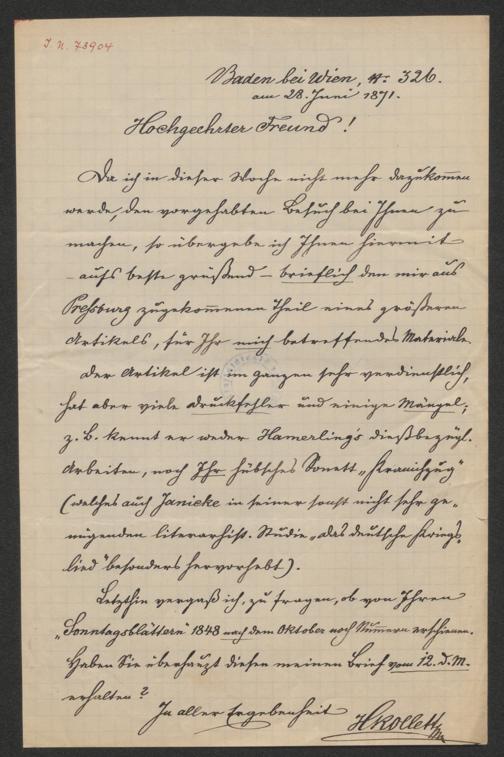 I. N. 78904
Baden bei Wien, Nr. 326.
am 28. Juni 1871.
Hochgeehrter Freund!
Da ich in dieser Woche nicht mehr dazukommen
werde, den vorgehabten Besuch bei Ihnen zu
machen, so übergebe ich Ihnen hiermit
– aufs beste grüßend – brieflich den mir aus
Preßburg zugekommenen Theil eines größeren
Artikels, für Ihr mich betreffendes Materiale.
Der Artikel ist im ganzen sehr verdienstlich,
hat aber viele Druckfehler und einige Mängel;
z. B. kennt er weder Hamerling's dießbezügl.
Arbeiten, noch Ihr hübsches Sonett „Kranichzug"
(welches auch Janicke in seiner sonst nicht sehr ge-
nügenden literarhist. Studie „das deutsche Kriegs-
lied" besonders hervorhebt).
Letzthin vergaß ich, zu fragen, ob von Ihren
„Sonntagsblättern" 1848 nach dem Oktober noch Numern erschienen.
Haben Sie überhaupt diesen meinen Brief vom 12. d. M.
erhalten?
In aller Ergebenheit
HKollett